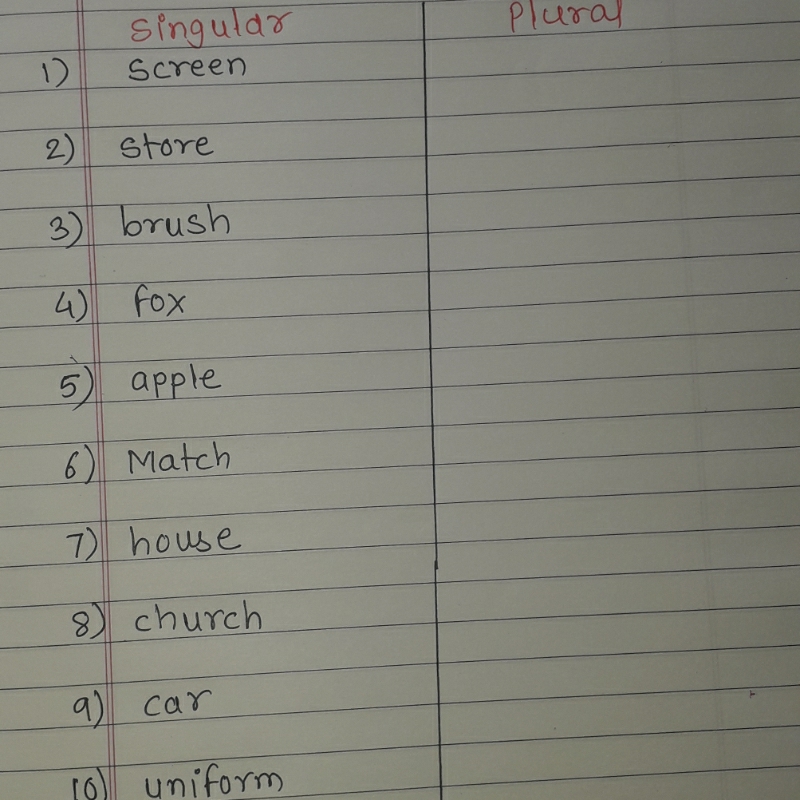 Singular Plural
1) Screen
2) Store
3) brush
4) fox
5) apple
6) Match
7) house
8) church
9) car
10) uniform